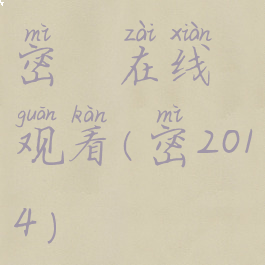 mì zài xiàn
密 在线
guān kàn mì
观看(密201
4)